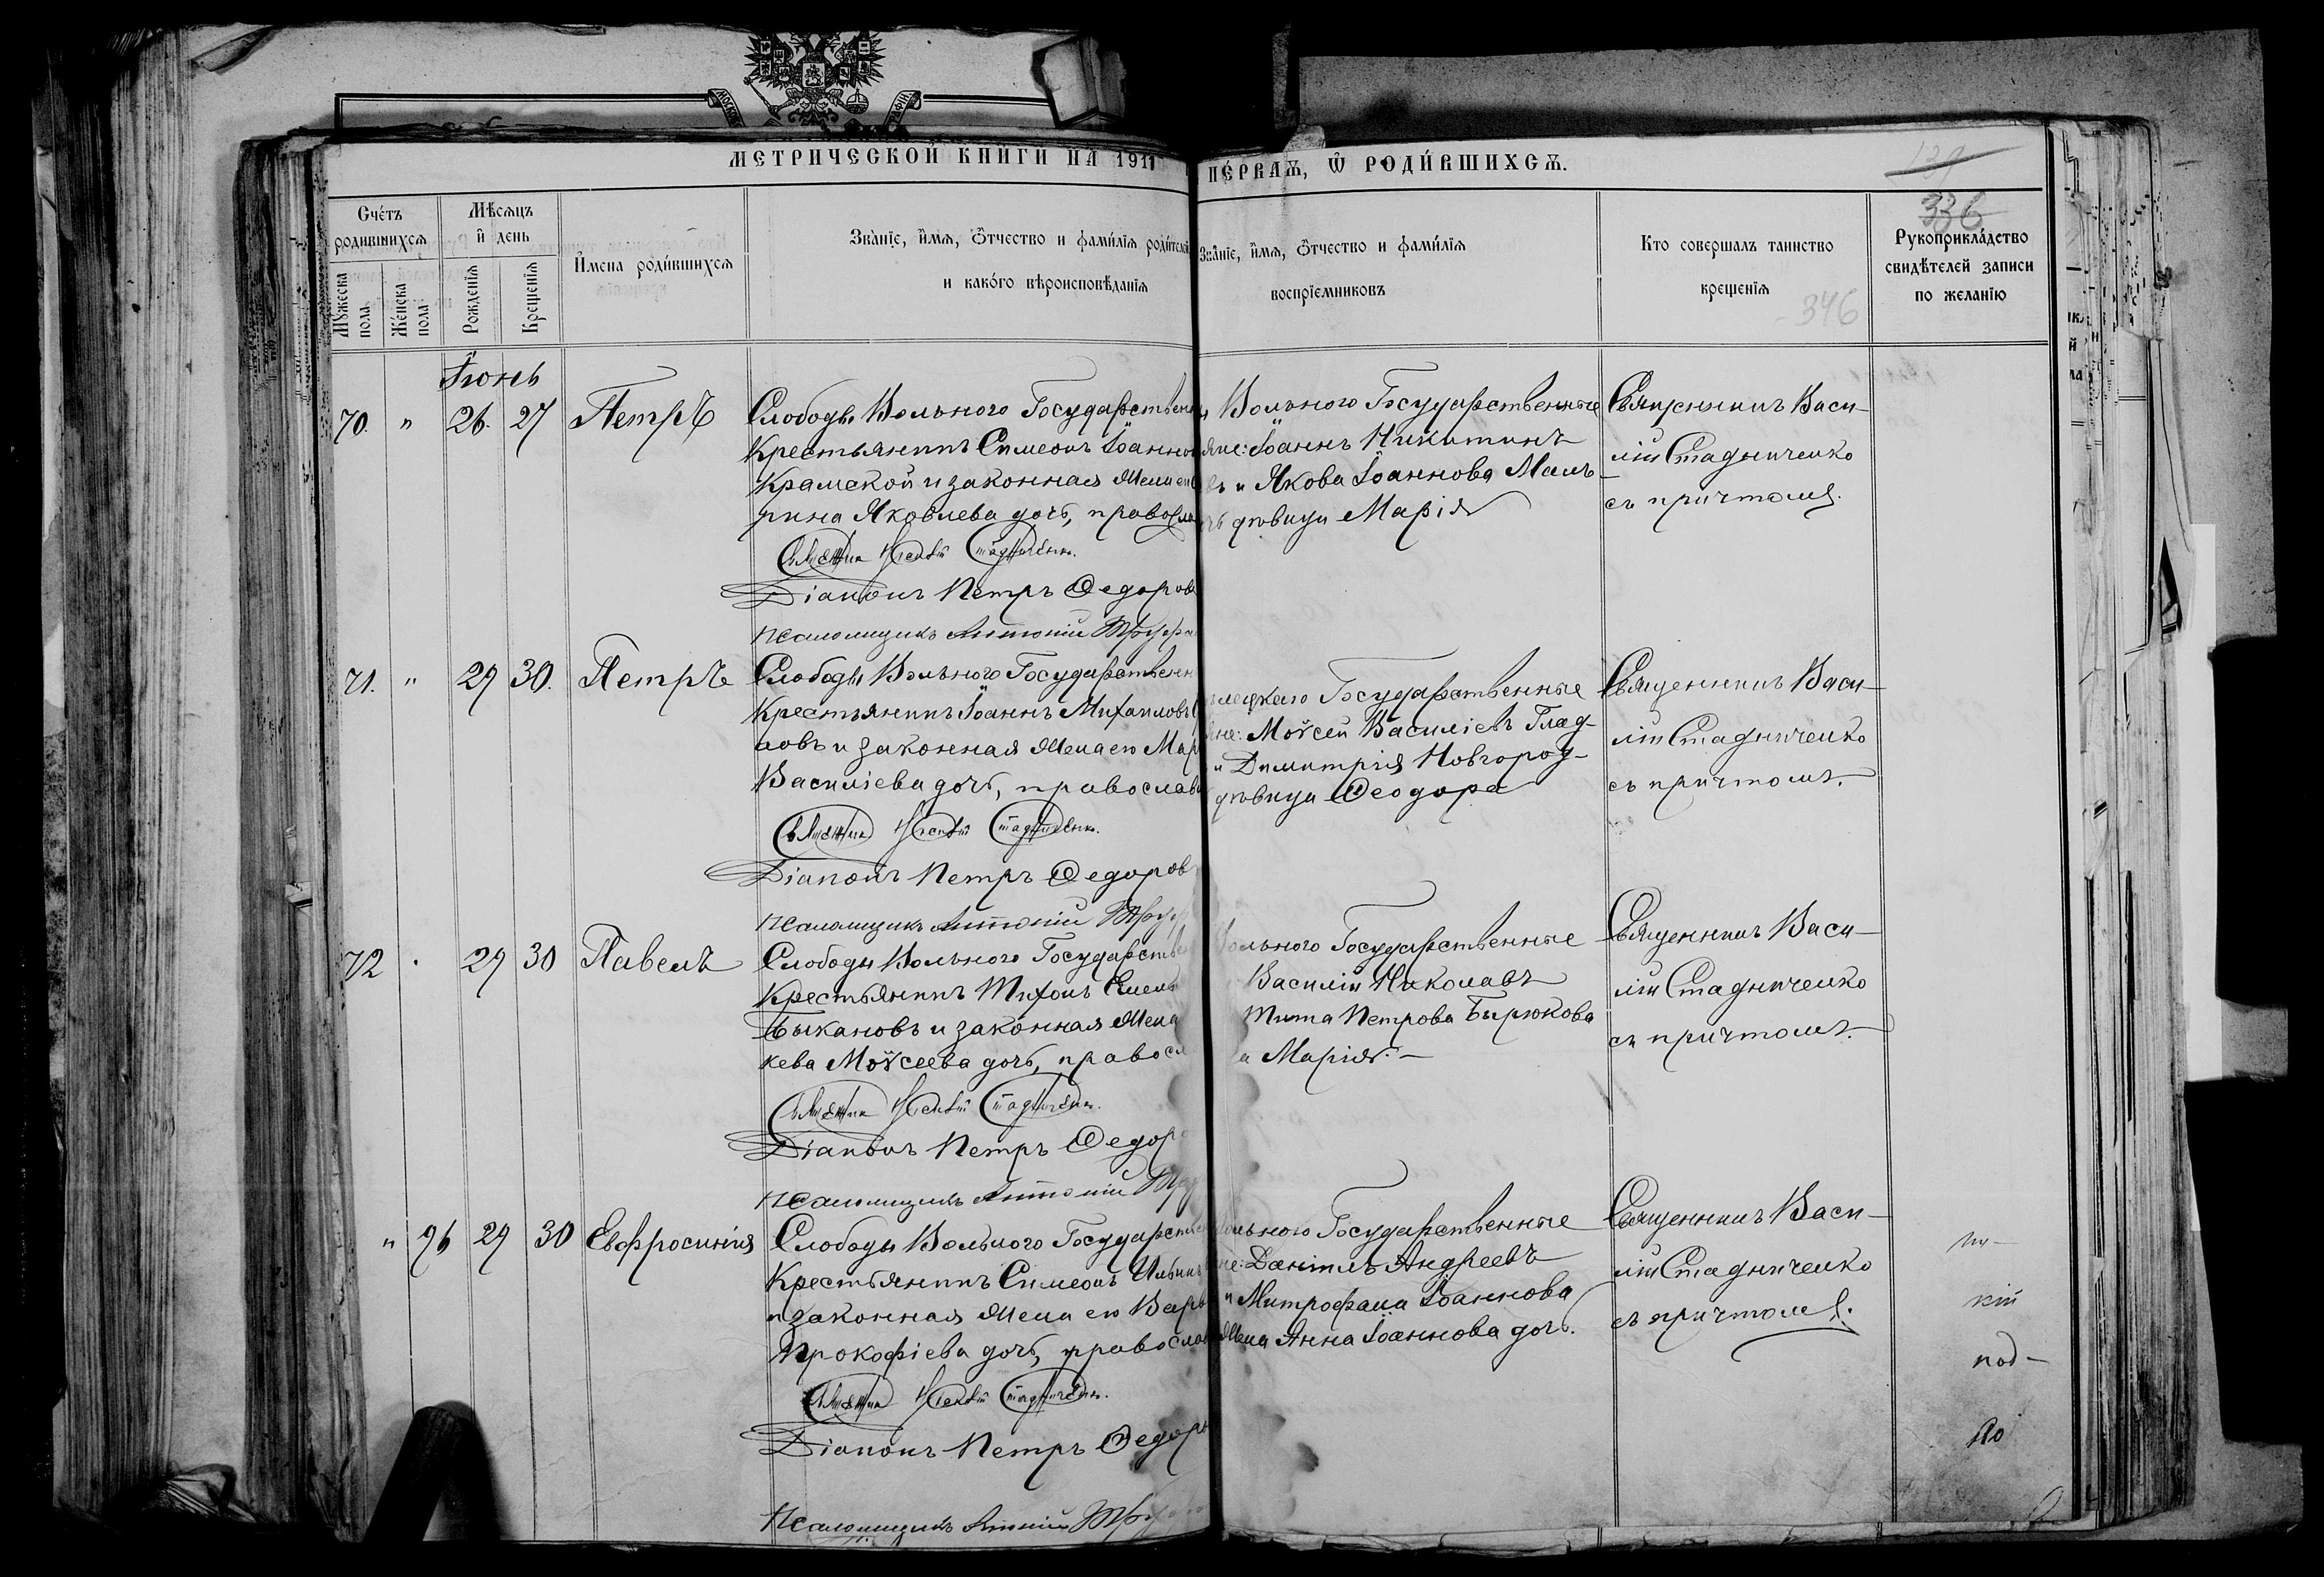 МЕТРИЧЕСКОЙ КНИГИ НА 1911
ПЕ́РВАѦ, Ѿ РОДИ́ВШИХСѦ.
336
346
Сче́тъ родившихсѧ
Мѣсѧцъ и день
Имена роди́вшихсѧ
Зва́нїе, и́мѧ, ѻ́тчество и фами́лїѧ роди́телей
и како́го вѣроисповѣданїѧ
Мꙋжеска пола
Же́нска пола
Рожденїѧ
Крещенїѧ
Зва́нїе, и́мѧ, ѻ́тчество и фами́лїѧ
воспрїемниковъ
Кто совершалъ таинство
крещенїѧ
Рукоприкла́дство
свидѣтелей записи
по желанїю
Іюнь
70. " 26. 27 Петръ
Слободы Вольнаго Государствен
Крестьянинъ Симеонъ Іоаннов
Крамской и законная жена ег
рина Яковлева дочь, правосла
Діаконъ Петръ Ѳедоров
Псаломщикъ Антоній
Вольного Государственные
яне: Іоаннъ Никитинъ
въ и Якова Іоаннова Маль-
дѣвица Марія
Священникъ Васи-
лій Стадниченко
съ причтомъ.
71. " 29 30. Петръ
Слободы Вольного Государственн
Крестьянинъ Іоаннъ Михаиловъ
ловъ и законная жена его Мар
Василіева дочь, православ
Діаконъ Петръ Ѳедоров
Псаломщикъ Антоній
Государственные
яне: Мοѵсей Василіевъ Глад-
и Димитрія Новгород-
дѣвица Ѳеодора
Священникъ Васи-
лій Стадниченко
съ причтомъ.
72 29 30 Павелъ
Слободы Вольного Государстве
Крестьянинъ Тихонъ Емель
Быкановъ и законная жена
кева Моѵсеева дочь, правосл
Діаконъ Петръ Ѳедор
Псаломщикъ Антоній
ольного Государственные
Василій Николаевъ
Тита Петрова Бирюкова
а Марія.
Священникъ Васи-
лій Стадниченко
съ причтомъ.
" 96 29 30 Евфросинія
Слободы Вольного Государствен
Крестьянинъ Симеонъ Ильинъ
и законная жена его Варв
Прокофіева дочь, правосла
Діаконъ Петръ Ѳедор
Псаломщикъ Антоній
ольного Государственные
не: Даніилъ Андреевъ
и Митрофана Іоаннова
жена Анна Іоаннова дочь.
Священникъ Васи-
лій Стадниченко
съ причтомъ.
кій
под-